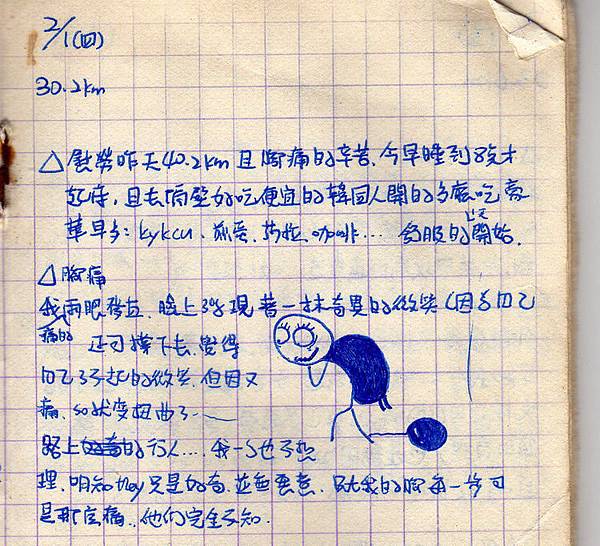 2/1(四)
30.2km
△慰勞昨天40.2km且腳痛的辛苦,今早睡到8點才
起床,且去隔壁好吃便宜的韓国人開的店吃豪
華早午:kykcu、瓜蛋、咖啡… 舒服的一天開始.
△腳痛
我痛的兩眼發直,臉上浮現著一抹奇異的微笑(因為自己
还可撐下去,覺得
自己了不起的微笑,但因又
痛,so狀变扭曲了~
路上的行人…,我一点也不想
理,明知they只是好奇,並無惡意,但我的腳每一步可
是那麼痛,他们完全不知.